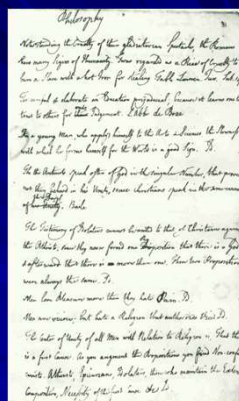 Philosophy
Notwithstanding the Cruelty of the gladiatorian Spectacles, the Romans
show many Signs of Humanity. Twas regarded as a Piece of Cruelty to
burn a Slave with a hot Iron for Stealing Table Linnen. Juv. Sat. 14
too compos'd & elaborate an Education prejudicial; because it learns one to
trust to others for one's Judgement. L'Abbé de Boze
If a young Man who applys himself to the Arts & Sciences the
with which he forms himself for the World is a good Sign. D.
In the Antients speak often of God in the singular Number, that proves
not they believd in his Unity, since Christians speak in the same manner
of the Devil. Baile
The Testimony of Idolaters cannot be united to that of Christians against
the Atheist; since they never formd one Proposition that there is a God
& afterwards that there is more than one. These two Propositions
were always the same. Do.
Men love Pleasure more than they hate Pain. D.
Men are vicious, but hate a Religion that authorises Vice. D.
The Center of Unity of all Men with Relation to Religion is, That there
is a first Cause. As you augment the Proposition you find Non-confor-
mists. Atheists, Epicureans, Idolaters, those who maintain the Extension,
Composition, Necessity of the first Cause &c. D.